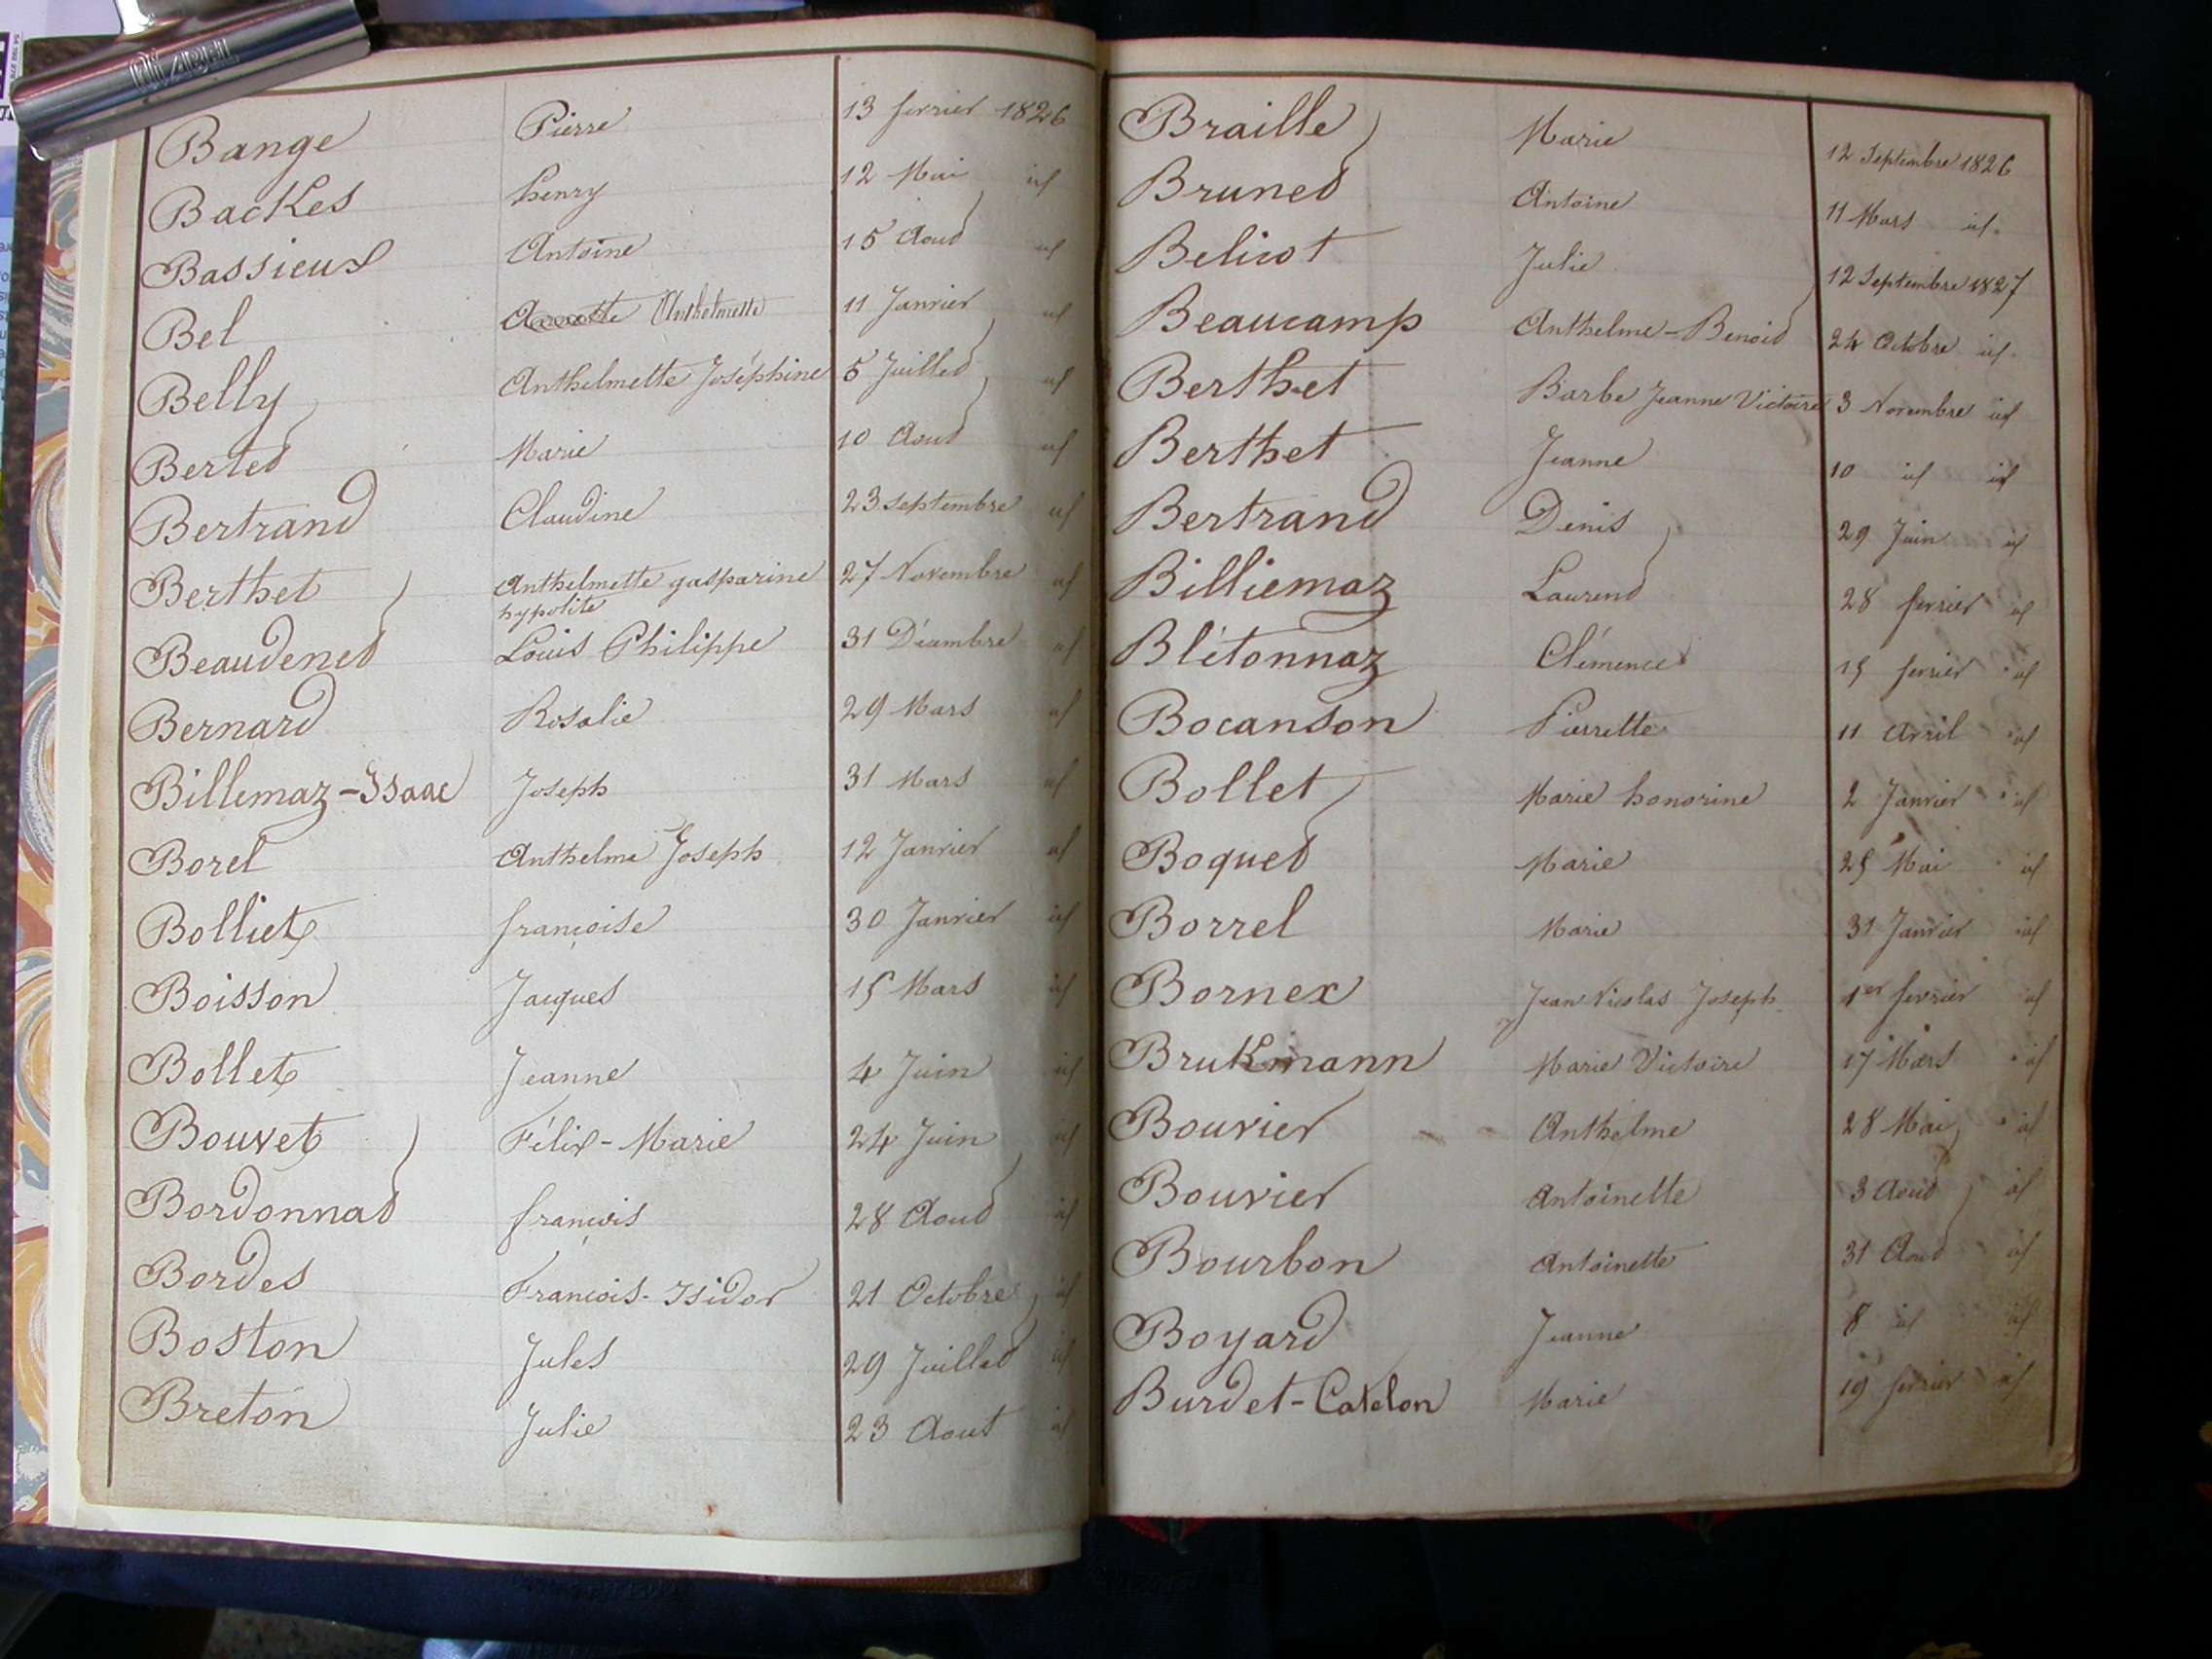 Bange Pierre 13 fevrier 1826
Backes henry 12 Mai id
Bassieux Antoine 15 Aout id
Bel Anthelmette 11 Janvier id
Belly Anthelmette Joséphine 5 Juillet id
Bertet Marie 10 Aout id
Bertrand Claudine 23 Septembre id
Berthet Anthelmette gasparine 27 Novembre id
hypolite
Beaudenet Louis Philippe 31 Décembre id
Bernard Rosalie 29 Mars id
Billemaz-Isaac Joseph 31 Mars id
Borel Anthelme Joseph 12 Janvier id
Bolliet françoise 30 Janvier id
Boisson Jacques 15 Mars id
Bollet Jeanne 4 Juin id
Bouvet Félix-Marie 24 Juin id
Bordonnat françois 28 Aout id
Bordes François-Isidor 21 Octobre id
Boston Jules 29 Juillet id
Breton Julie 23 Aout id
Braille Marie 12 Septembre 1826
Brunet Antoine 11 Mars id.
Belicot Julie 12 Septembre 1827
Beaucamp Anthelme-Benoit 24 Octobre id.
Berthet Barbe Jeanne Victoire 3 Novembre id
Berthet Jeanne 10 id id
Bertrand Denis 29 Juin id
Billiemaz Laurent 28 fevrier id
Blétonnaz Clémence 15 fevrier id
Bocanson Pierrette 11 Avril id
Bollet Marie honorine 2 Janvier id
Boquet Marie 25 Mai id
Borrel Marie 31 Janvier id
Bornex Jean Nicolas Joseph 1er fevrier id
Brukmann Marie Victoire 17 Mars id
Bouvier Anthelme 28 Mai id
Bouvier Antoinette 3 Aout id
Bourbon Antoinette 31 Aout id
Boyard Jeanne 8 id id
Burdet-Catelon Marie 19 fevrier id